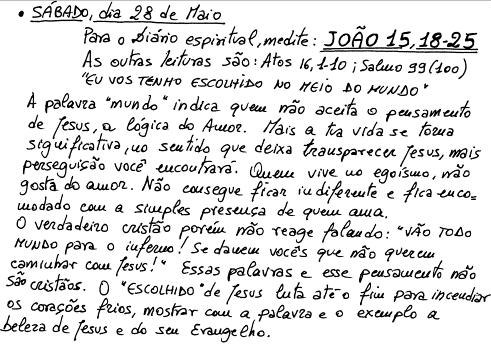 • SÁBADO, dia 28 de Maio
Para o Diário espiritual, medite: JOÃO 15,18-25
As outras leituras são: Atos 16,1-10; Salmo 99(100)
"EU VOS TENHO ESCOLHIDO NO MEIO DO MUNDO"
A palavra "mundo" indica quem não aceita o pensamento
de Jesus, a lógica do Amor. Mais a ta vida se torna
significativa, no sentido que deixa transparecer Jesus, mais
perseguição você encontrará. Quem vive no egoísmo, não
gosta do amor. Não consegue ficar indiferente e fica enco=
modado com a simples presença de quem ama.
O verdadeiro cristão porém não reage falando: "VÃO TODO
MUNDO para o inferno! Se danem vocês que não querem
caminhar com Jesus!" Essas palavras e esse pensamento não
são cristãos. O "ESCOLHIDO" de Jesus luta até o fim para incendiar
os corações frios, mostrar com a palavra e o exemplo a
beleza de Jesus e do seu Evangelho.